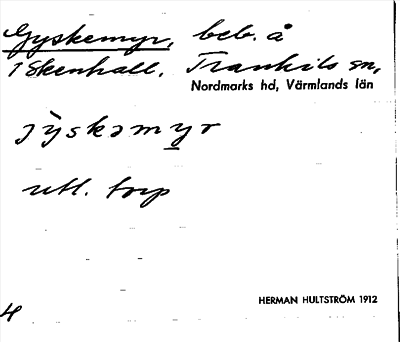 Gyskemyr, beb. å
1 Skenhall, Trankils sn,
Nordmarks hd, Värmlands län
jỳskəmyr
utl. torp
HERMAN HULTSTRÖM 1912
4